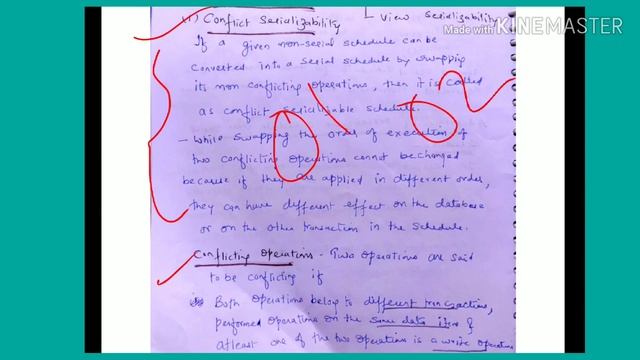 (1) Conflict Serializability
View Serializability
Made with KINEMASTER
If a given non-serial schedule can be
converted into a serial schedule by swapping
its non conflicting operations, then it is called
as conflict serializable schedule.
- While swapping the order of execution of
two conflicting operations cannot be changed
because if they are applied in different order,
they can have different effect on the database
or on the other transaction in the schedule.
Conflicting operations - Two operations are said
to be conflicting if
Both operations belong to different transactions,
performed operations on the same data item &
atleast one of the two operations is a write operation
O1 O2